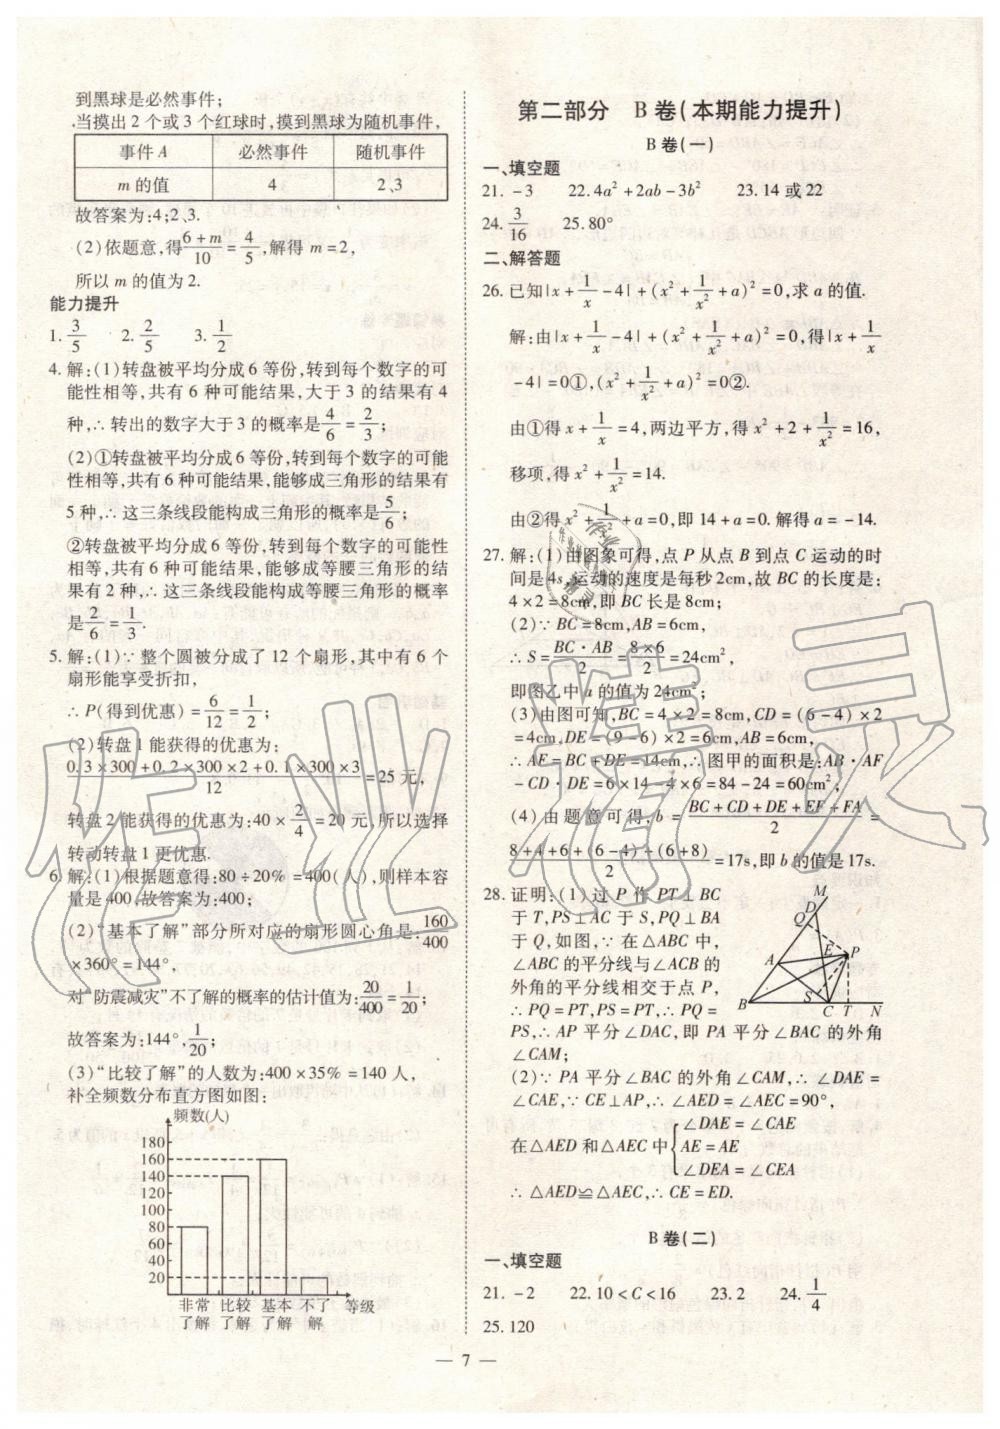 到黑球是必然事件;
当摸出 2 个或 3 个红球时,摸到黑球为随机事件,
事件 A 必然事件 随机事件
m 的值 4 2、3
故答案为:4;2、3.
(2)依题意,得 (6+m)/10 = 4/5,解得 m=2,
所以 m 的值为 2.
能力提升
1. 3/5 2. 2/5 3. 1/2
4. 解:(1)转盘被平均分成 6 等份,转到每个数字的可
能性相等,共有 6 种可能结果,大于 3 的结果有 4
种,∴ 转出的数字大于 3 的概率是 4/6 = 2/3;
(2)①转盘被平均分成 6 等份,转到每个数字的可能
性相等,共有 6 种可能结果,能够成三角形的结果有
5 种,∴ 这三条线段能构成三角形的概率是 5/6;
②转盘被平均分成 6 等份,转到每个数字的可能性
相等,共有 6 种可能结果,能够成等腰三角形的结
果有 2 种,∴ 这三条线段能构成等腰三角形的概率
是 2/6 = 1/3.
5. 解:(1)∵ 整个圆被分成了 12 个扇形,其中有 6 个
扇形能享受折扣,
∴ P(得到优惠) = 6/12 = 1/2;
(2)转盘 1 能获得的优惠为:
(0.3×300+0.2×300×2+0.1×300×3)/12 = 25 元,
转盘 2 能获得的优惠为:40 × 2/4 = 20 元,所以选择
转动转盘 1 更优惠.
6. 解:(1)根据题意得:80÷20% = 400(人),则样本容
量是 400,故答案为:400;
(2)“基本了解”部分所对应的扇形圆心角是:160/400
×360° = 144°,
对“防震减灾”不了解的概率的估计值为:20/400 = 1/20;
故答案为:144°,1/20;
(3)“比较了解”的人数为:400×35% = 140 人,
补全频数分布直方图如图:
频数(人)
180
160
140
120
100
80
60
40
20
非常了解 比较了解 基本了解 不了解 等级
第二部分 B 卷(本期能力提升)
B 卷(一)
一、填空题
21. -3 22. 4a²+2ab-3b² 23. 14 或 22
24. 3/16 25. 80°
二、解答题
26. 已知|x+1/x-4|+(x²+1/x²+a)²=0,求 a 的值.
解:由|x+1/x-4|+(x²+1/x²+a)²=0,得|x+1/x
-4|=0①,(x²+1/x²+a)²=0②.
由①得 x+1/x=4,两边平方,得 x²+2+1/x²=16,
移项,得 x²+1/x²=14.
由②得 x²+1/x²+a=0,即 14+a=0. 解得 a=-14.
27. 解:(1)由图象可得,点 P 从点 B 到点 C 运动的时
间是 4s,运动的速度是每秒 2cm,故 BC 的长度是:
4×2=8cm,即 BC 长是 8cm;
(2)∵ BC=8cm,AB=6cm,
∴ S=(BC·AB)/2=(8×6)/2=24cm²,
即图乙中 a 的值为 24cm²;
(3)由图可知,BC=4×2=8cm,CD=(6-4)×2
=4cm,DE=(9-6)×2=6cm,AB=6cm,
∴ AE=BC+DE=14cm,∴ 图甲的面积是:AB·AF
-CD·DE=6×14-4×6=84-24=60cm²,
(4)由题意可得,b=(BC+CD+DE+EF+FA)/2=
(8+4+6+(6-4)+(6+8))/2=17s,即 b 的值是 17s.
28. 证明:(1)过 P 作 PT⊥BC
于 T,PS⊥AC 于 S,PQ⊥BA
于 Q,如图,∵ 在△ABC 中,
∠ABC 的平分线与∠ACB 的
外角的平分线相交于点 P,
∴ PQ=PT,PS=PT,∴ PQ=
PS,∴ AP 平分∠DAC,即 PA 平分∠BAC 的外角
∠CAM;
(2)∵ PA 平分∠BAC 的外角∠CAM,∴ ∠DAE=
∠CAE,∵ CE⊥AP,∴ ∠AED=∠AEC=90°,
在△AED 和△AEC 中{∠DAE=∠CAE
AE=AE
∠DEA=∠CEA
∴ △AED≌△AEC,∴ CE=ED.
M
D
Q
E
P
A
S
B
C T N
B 卷(二)
一、填空题
21. -2 22. 10<C<16 23. 2 24. 1/4
25. 120
— 7 —
作业精灵